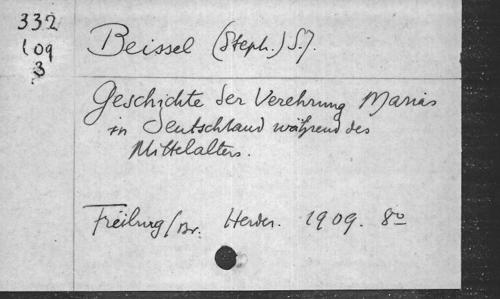 332
109
3
Beissel (Steph.) S.J.
Geschichte der Verehrung Marias
in Deutschland während des
Mittelalters.
Freiburg/Br. Herder. 1909. 8°